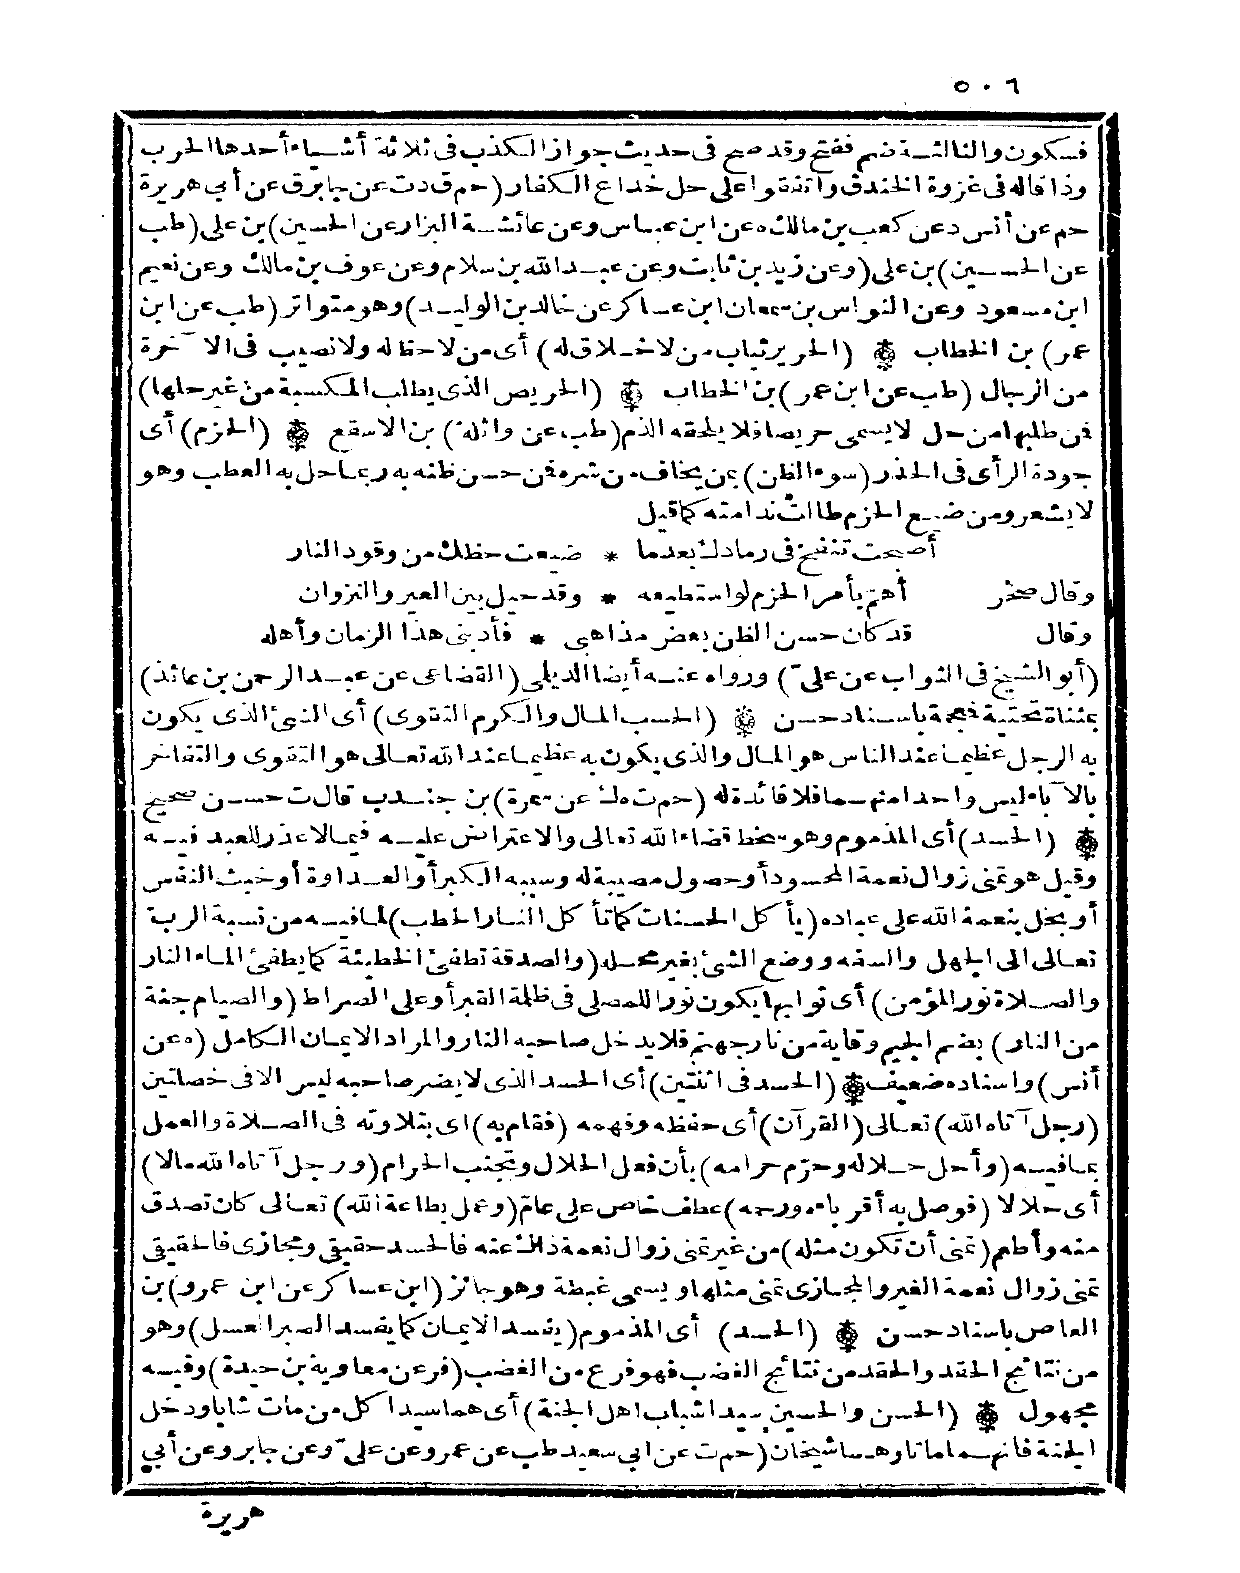 ٥٠٦
فسكون والثالثة ضم ففتح وقد صح فى حديث جواز الكذب فى ثلاثة أشياء أحدها الحرب
وذا قاله فى غزوة الخندق واتفقوا على حل خداع الكفار (حم ق دت عن جابر ق عن أبى هريرة
حم عن أنس د عن كعب بن مالك ه عن ابن عباس وعن عائشة البزار عن الحسين) بن على (طب
عن الحسين) بن على (وعن زيد بن ثابت وعن عبد الله بن سلام وعن عوف بن مالك وعن نعيم
ابن مسعود وعن النواس بن سمعان ابن عساكر عن خالد بن الوليد) وهو متواتر (طب عن ابن
عمر) بن الخطاب ۞ (الحرير ثياب من لا خلاق له) أى من لا حظ له ولا نصيب فى الآخرة
من الرجال (طب عن ابن عمر) بن الخطاب ۞ (الحريص الذى يطلب المكسبة من غير حلها)
فمن طلبها من حل لا يسمى حريصا فلا يلحقه الذم (طب عن واثلة) بن الاسقع ۞ (الحزم) أى
جودة الرأى فى الحذر (سوء الظن) بمن يخاف من شره فمن حسن ظنه به ربما حل به العطب وهو
لا يشعر ومن ضيع الحزم طالت ندامته كما قيل
أصبحت تنفخ فى رمادك بعدما * ضيعت حظك من وقود النار
وقال صخر أهمّ بأمر الحزم لو استطيعه * وقد حيل بين العير والنزوان
وقال قد كان حسن الظن بعض مذاهبى * فأدبنى هذا الزمان وأهله
(أبو الشيخ فى الثواب عن علىّ) ورواه عنه أيضا الديلى (القضاعى عن عبد الرحمن بن عائذ)
بمثناة تحتية فمعجمة باسناد حسن ۞ (الحسب المال والكرم التقوى) أى الشئ الذى يكون
به الرجل عظيما عند الناس هو المال والذى يكون به عظيما عند الله تعالى هو التقوى والتفاخر
بالآباء ليس واحدا منهما فلا فائدة له (حم ت ه ك عن سمرة) بن جندب قال ت حسن صحيح
۞ (الحسد) أى المذموم وهو سخط قضاء الله تعالى والاعتراض عليه فيما لا عذر للعبد فيه
وقيل هو تمنى زوال نعمة المحسود أو حصول مصيبة له وسببه الكبر أو العداوة أو خبث النفس
أو بخل بنعمة الله على عباده (يأكل الحسنات كما تأكل النار الحطب) لما فيه من نسبة الرب
تعالى الى الجهل والسفه ووضع الشئ بغير محله (والصدقة تطفئ الخطيئة كما يطفئ الماء النار
والصلاة نور المؤمن) أى ثوابها يكون نورا للمصلى فى ظلمة القبر أو على الصراط (والصيام جنة
من النار) بضم الجيم وقاية من نار جهنم فلا يدخل صاحبه النار والمراد الايمان الكامل (ه عن
أنس) واسناده ضعيف ۞ (الحسد فى اثنتين) أى الحسد الذى لا يضر صاحبه ليس الا فى خصلتين
(رجل آتاه الله) تعالى (القرآن) أى حفظه وفهمه (فقام به) اى بتلاوته فى الصلاة والعمل
بما فيه (وأحل حلاله وحرّم حرامه) بأن فعل الحلال وتجنب الحرام (ورجل آتاه الله مالا)
أى حلالا (فوصل به أقرباءه ورحمه) عطف خاص على عامّ (وعمل بطاعة الله) تعالى كان تصدق
منه وأطعم (تمنى أن تكون مثله) من غير تمنى زوال نعمة ذلك عنه فالحسد حقيقى ومجازى فالحقيقى
تمنى زوال نعمة الغير والمجازى تمنى مثلها ويسمى غبطة وهو جائز (ابن عساكر عن ابن عمرو) بن
العاص باسناد حسن ۞ (الحسد) أى المذموم (يفسد الايمان كما يفسد الصبر العسل) وهو
من نتائج الحقد والحقد من نتائج الغضب فهو فرع من الغضب (فر عن معاوية بن حيدة) وفيه
مجهول ۞ (الحسن والحسين سيدا شباب اهل الجنة) أى هما سيدا كل من مات شابا ودخل
الجنة فانهما ماتا وهما شيخان (حم ت عن ابى سعيد طب عن عمر وعن علىّ وعن جابر وعن أبى
هريرة